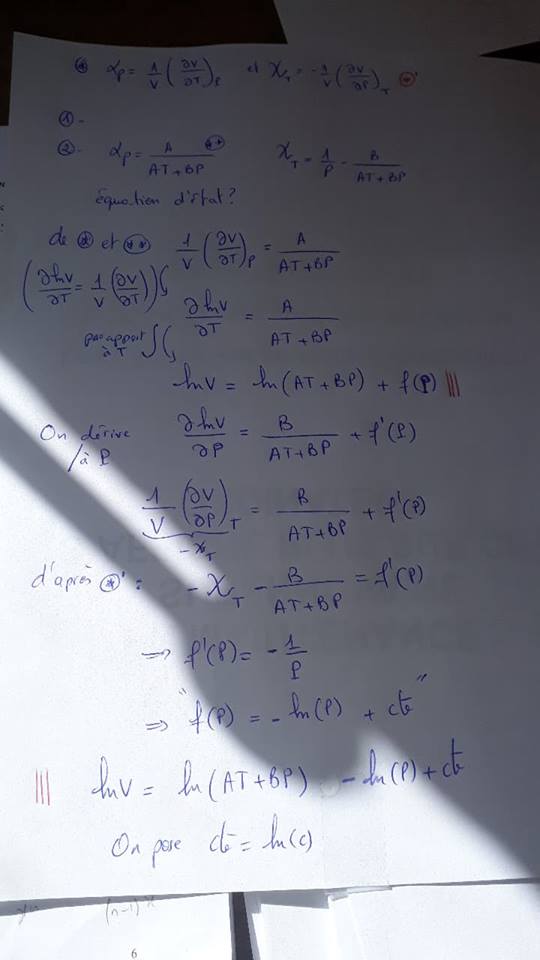 ⊛ αp = 1/V (∂V/∂T)_P et χ_T = -1/V (∂V/∂P)_T ⊛'
①-
②- αp = A/(AT+BP) ⊛⊛ χ_T = 1/P - B/(AT+BP)
équation d'état?
de ⊛ et ⊛⊛ 1/V (∂V/∂T)_P = A/(AT+BP)
(∂lnV/∂T = 1/V (∂V/∂T)) ∂lnV/∂T = A/(AT+BP)
par apport à T ∫
lnV = ln(AT+BP) + f(P) |||
On dérive /à P ∂lnV/∂P = B/(AT+BP) + f'(P)
1/V (∂V/∂P)_T = B/(AT+BP) + f'(P)
-χ_T
d'après ⊛' : -χ_T - B/(AT+BP) = f'(P)
⇒ f'(P) = -1/P
⇒ "f(P) = -ln(P) + cte"
||| lnV = ln(AT+BP) - ln(P) + cte
On pose cte = ln(c)
(n-1)
6